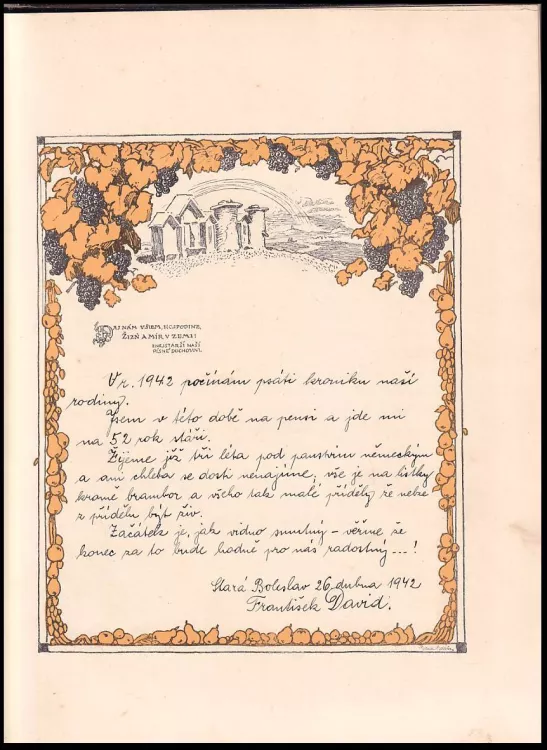 DEJ NÁM VŠEM, HOSPODINE,
ŽIZŇ A MÍR V ZEMI!
Z NEJSTARŠÍ NAŠÍ
PÍSNĚ DUCHOVNÍ.
V r. 1942 počínám psáti kroniku naší
rodiny.
Jsem v této době na pensi a jde mi
na 52 rok stáří.
Žijeme již tři léta pod panstvím německým
a ani chleba se dosti nenajíme; vše je na lístky
kromě brambor a všeho tak malé příděly, že nelze
z přídělu být živ.
Začátek je, jak vidno smutný – věříme že
konec za to bude hodně pro nás radostný...!
Stará Boleslav 26. dubna 1942
František David.